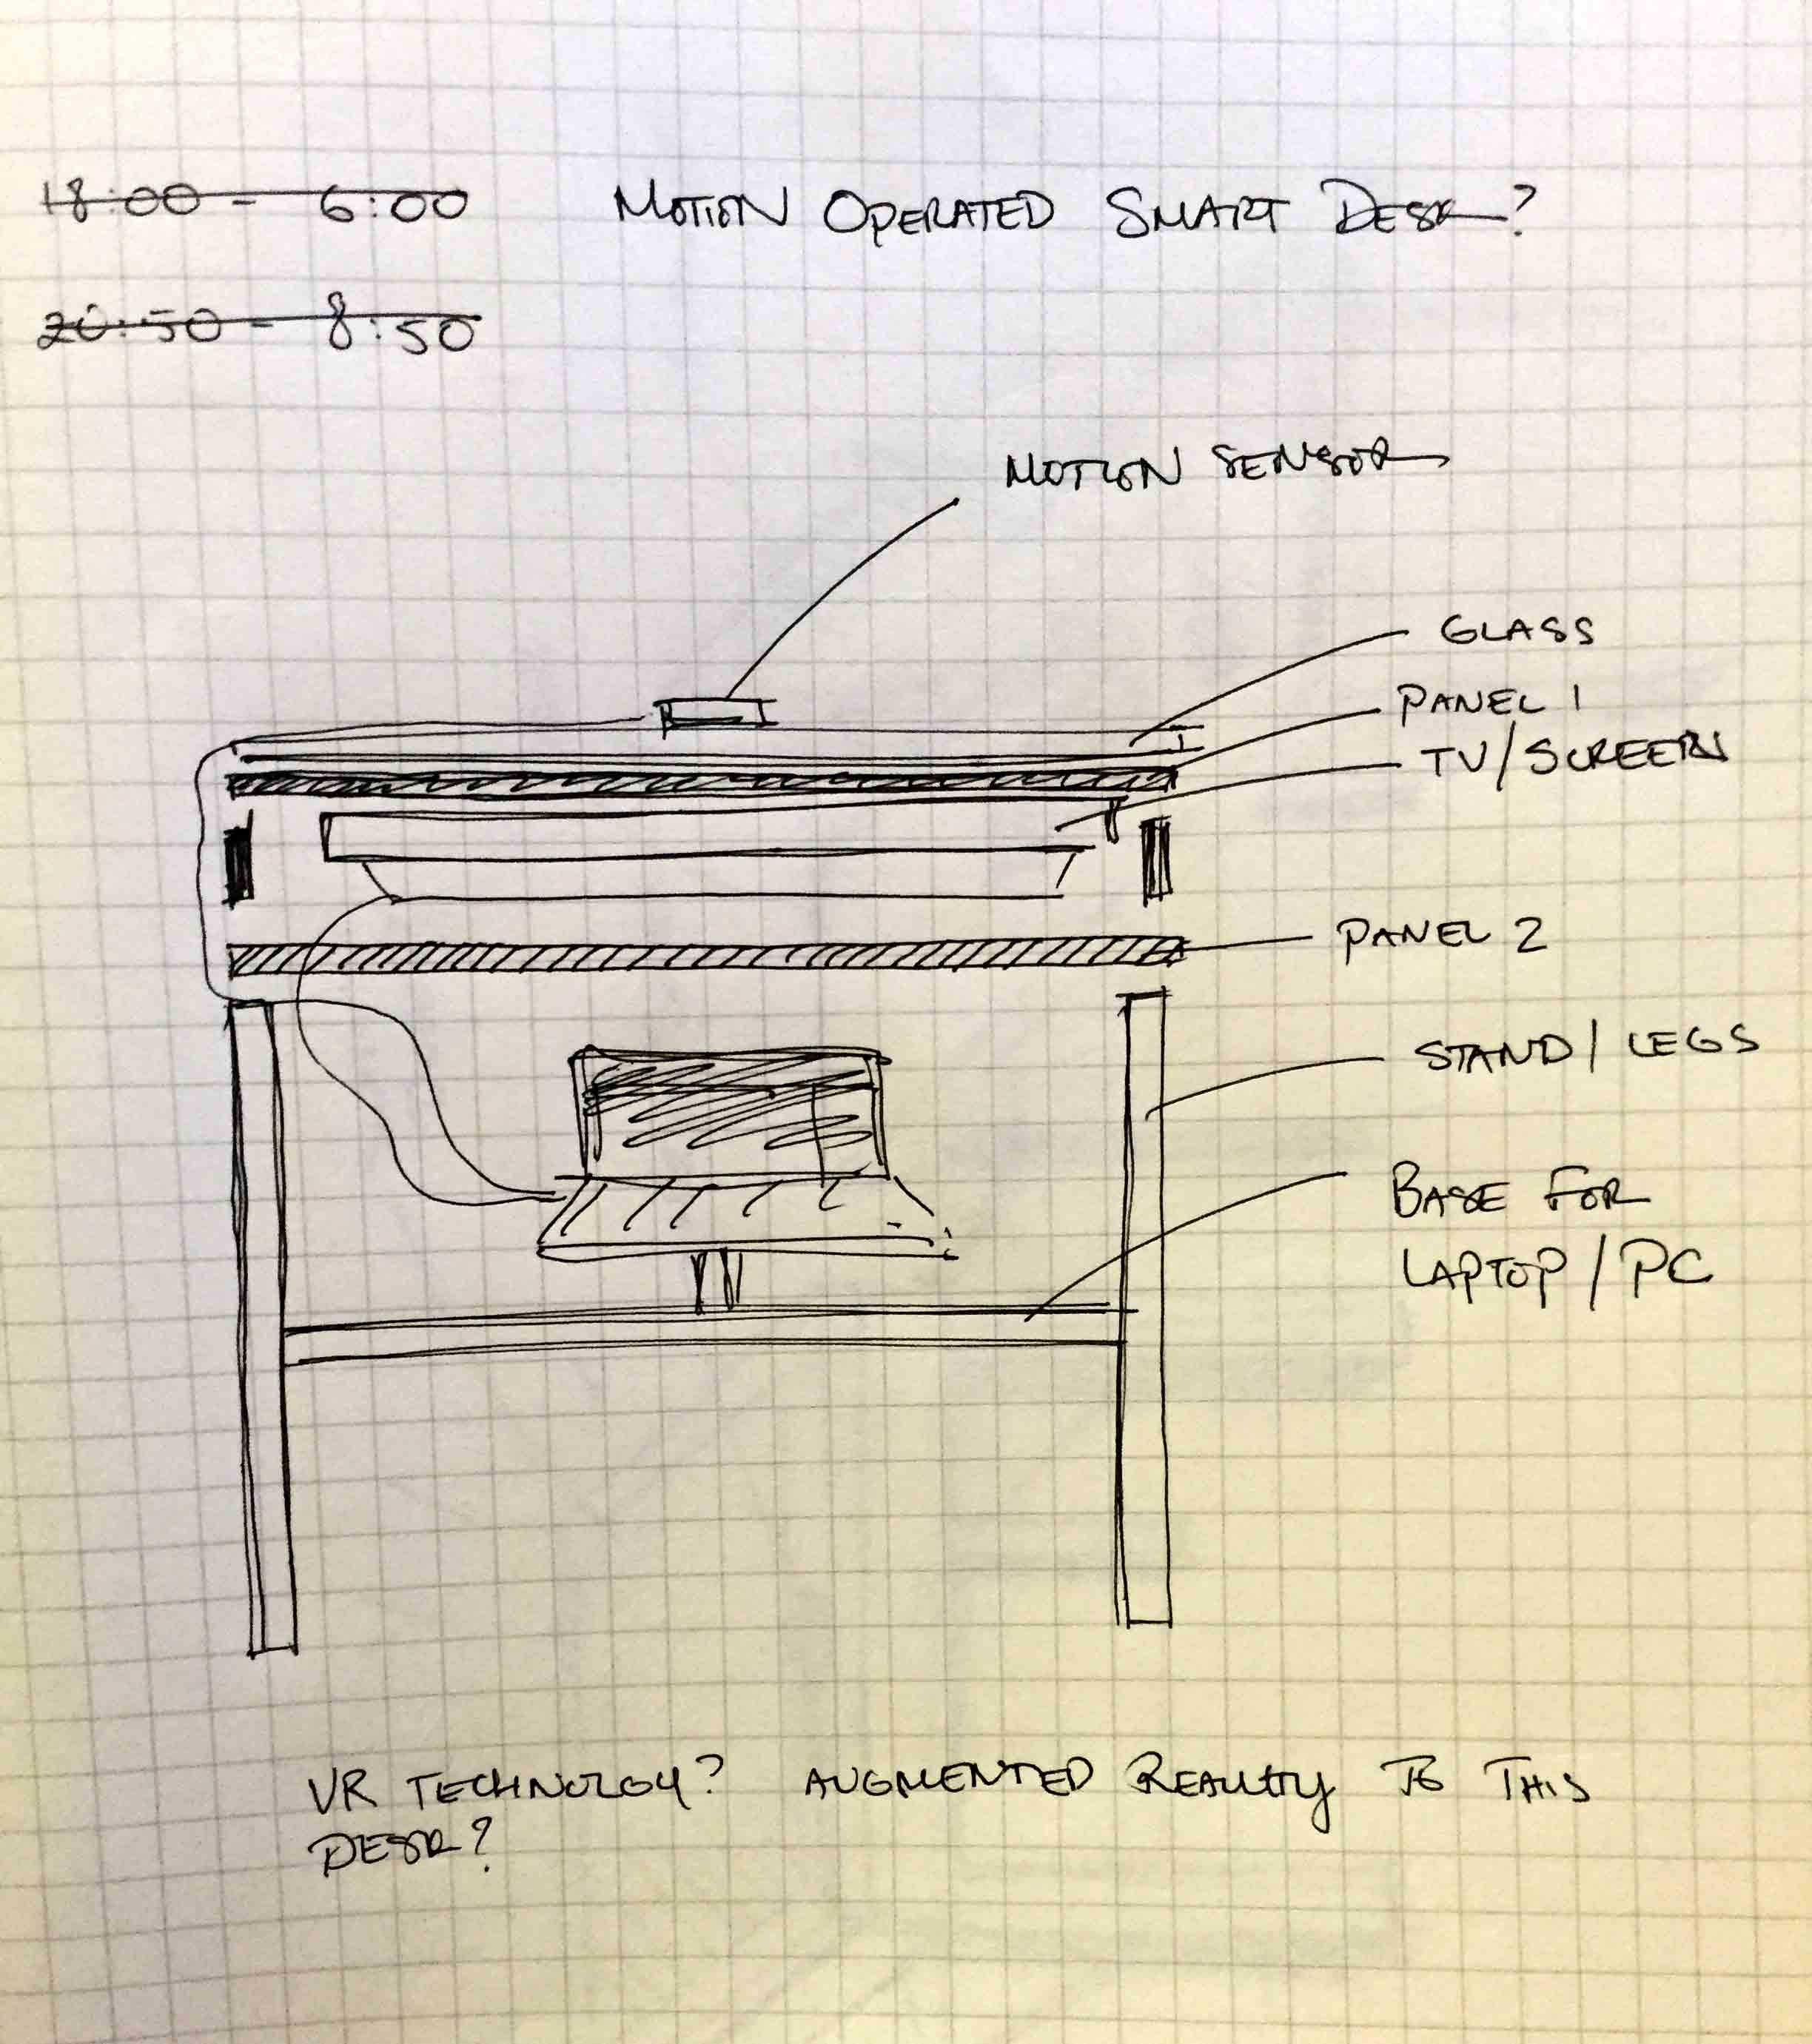 18:00 - 6:00
MOTION OPERATED SMART DESK?
20:50 - 8:50
MOTION SENSOR
GLASS
PANEL 1
TV/SCREEN
PANEL 2
STAND/LEGS
BASE FOR
LAPTOP/PC
VR TECHNOLOGY? AUGMENTED REALITY TO THIS
DESK?